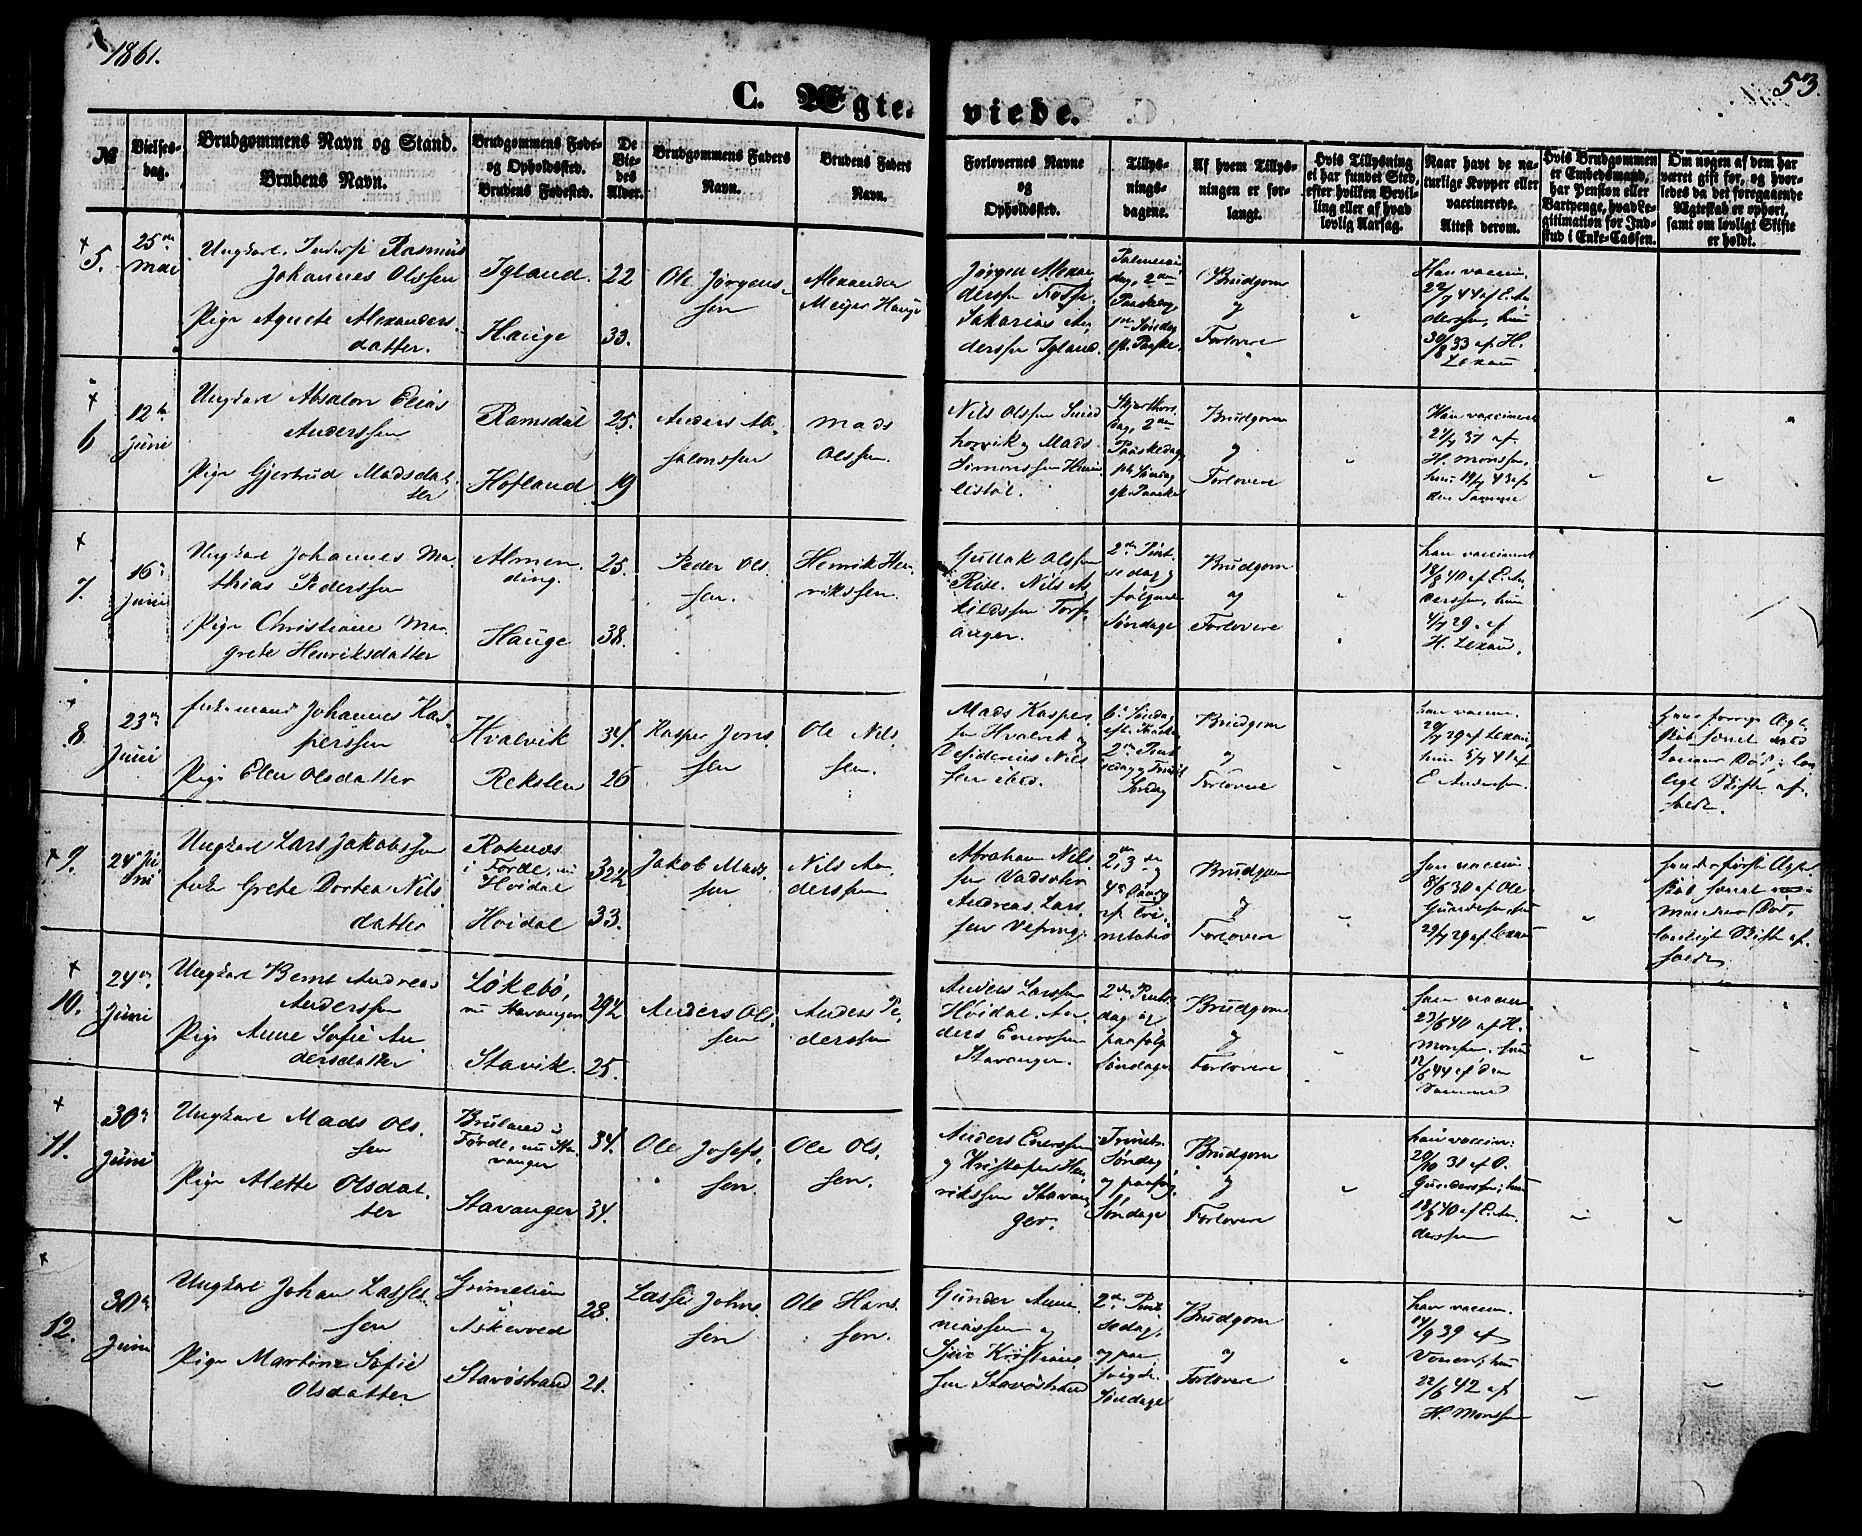 1861.
53.
C. Ægteviede.
№
Vielsesdag.
Brudgommens Navn og Stand.
Brudens Navn.
Brudgommens Føde-
og Opholdssted.
Brudens Fødested.
De
Vie-
des
Alder.
Brudgommens Faders
Navn.
Brudens Faders
Navn.
Forlovernes Navne
og
Opholdssted.
Tillys-
nings-
dagene.
Af hvem Tillys-
ningen er for-
langt.
Hvis Tillysning
ei har fundet Sted,
efter hvilken Bevil-
ling eller af hvad
lovlig Aarsag.
Naar havt de na-
turlige Kopper eller
vaccinerede.
Attest derom.
Hvis Brudgommen
er Embedsmand,
har Pension eller
Vartpenge, hvad Le-
gitimation for Ind-
skud i Enke-Cassen.
Om nogen af dem har
været gift før, og hvor-
ledes da det foregaaende
Ægteskab er ophørt,
samt om lovligt Skifte
er holdt.
5.
25de
Mai
Ungkarl, Rasmus
Johannes Olssen
Pige Agnete Alexanders-
datter.
Igland
Hauge
22
33.
Ole Jørgens-
sen
Alexander
Meyer Hauge
Jørgen Alexan-
derssen
Sakarias An-
derssen Igland.
Palmesøn-
dag, 2den
Paaskedag,
1ste Søndag
eft. Paaske.
Brudgom
og
Forlovere
Han vaccin.
22/7 44 af E. An-
derssen, hun
30/8 33 af H.
Lexau
6
12te
Juni
Ungkarl Absalon Elias
Anderssen
Pige Gjertrud Madsdat-
ter
Ramsdal
Hofland
25.
19
Anders Ab-
salonssen
Mads
Olssen.
Nils Olssen Smed-
horvik, Mads
Simonssen
Skjærthors-
dag, 2den
Paaskedag,
1ste Søndag
eft. Paaske
Brudgom
og
Forlovere
Han vaccineret
37 af
H. Monssen,
hun 43 af
den Samme
7.
16de
Juni
Ungkarl Johannes Ma-
thias Pederssen
Pige Christiane Mar-
grete Henriksdatter
Almen-
ding.
Hauge
25.
38.
Peder Ols-
sen.
Henrik Hen-
rikssen.
Guttak Olssen
Nils
anger.
2den Pint-
sedag og
følgende
Søndage
Brudgom
og
Forlovere
han vaccineret
18/8 40 af E. An-
derssen, hun
29 af
H. Lexau.
8
23de
Juni
Enkemand Johannes Kas-
perssen
Pige Elen Olsdatter
Hvalvik
Reksten
34.
26
Kasper Jons-
sen
Ole Nils-
sen.
Mads Kaspers-
sen Hvalvik og
Desiderius Nils-
sen ibid.
6te Søndag
eft. Paaske
2den Pint-
sedag, Trinit.
Søndag
Brudgom
og
Forlovere
han vaccin.
29 af Lexau,
hun 41 af
E. Anderssen.
Hans forrige Ægte-
skab hævet ved
Konens Død, lov-
ligt Skifte af-
holdt.
9.
24de Ju-
ni
Ungkarl Lars Jakobssen
Enke Grete Dortea Nils-
datter
Roknæs
i Førde, nu
Høidal
Høidal
32½
33.
Jakob Mads-
sen
Nils An-
derssen
Abraham Nils-
sen Vadsvær
Andreas Lars-
sen Vefring.
2, 3de og
4de Søndag
ef. Tri-
nitatis
Brudgom
og
Forlovere
han vaccin.
8/6 30 af Ole
Gunderssen, hun
29/7 29 af Lexau
Hendes første Ægte-
skab hævet ved
Mandens Død,
lovligt Skifte af-
holdt
10.
24de
Juni
Ungkarl Bernt Andreas
Anderssen
Pige Anne Sofie An-
dersdatter
Løkebø,
nu Stavanger
Stavik.
29½
25.
Anders Ols-
sen
Anders Pe-
derssen
Anders Larssen
Høidal. An-
ders Enerssen
Stavanger.
2den Pints-
dag og
paafølg.
Søndage
Brudgom
og
Forlovere
han vaccin.
23/6 40 af H.
Monssen, hun
44 af den
Samme
11.
30de
Juni
Ungkarl Mads Ols-
sen
Pige Alette Olsdat-
ter
Bruland i
Førde, nu Sta-
vanger
Stavanger
34.
34.
Ole Josefs-
sen.
Ole Ols-
sen.
Anders Enerssen
og Kristofer Hen-
rikssen Stavan-
ger.
Trinit.
Søndag
og paaføl.
Søndage
Brudgom
og
Forlovere
han vaccin.
29/10 31 af O.
Gunderssen, hun
40 af E. An-
derssen
12.
30de
Juni
Ungkarl Johan Lasses-
sen
Pige Martine Sofie
Olsdatter
Grimelien
i
Askevold
Stavøstrand
28.
21.
Lasse Johns-
sen
Ole Hans-
sen.
Gunder Anne-
niassen og
Kristians-
sen Stavøstrand
2den Pint-
sedag,
og paa-
følgde.
Søndage
Brudgom
og
Forlovere
han vaccin.
14/9 39 af
hun
22/6 42 af
H. Monssen